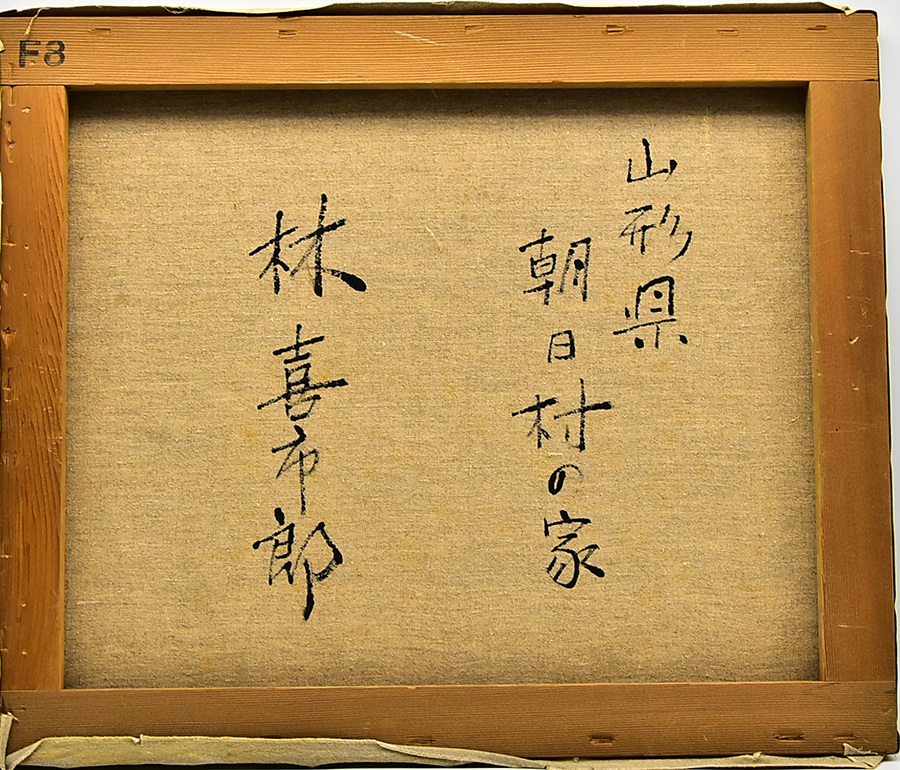 F8
山形県
朝日村の家
林喜市郎